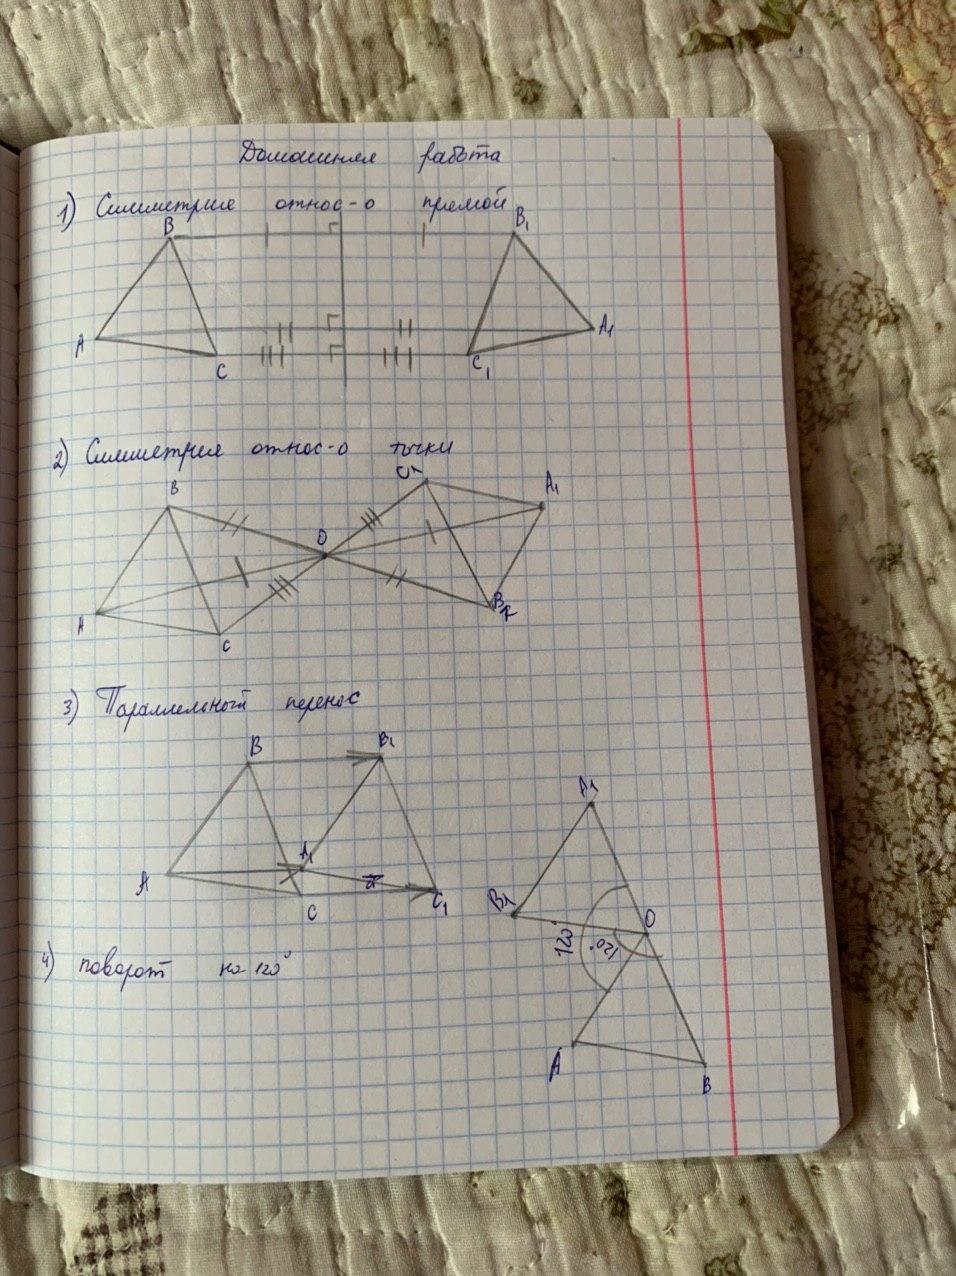 Домашняя работа
1) Симметрия относ-о прямой
B B₁
A A₁
C C₁
2) Симметрия относ-о точки
C₁
B A₁
O
B₁
A
C
3) Параллельный перенос
B B₁
A₁
A₁
A a⃗
C C₁
B₁
O
120° 120°
4) поворот на 120°
A
B